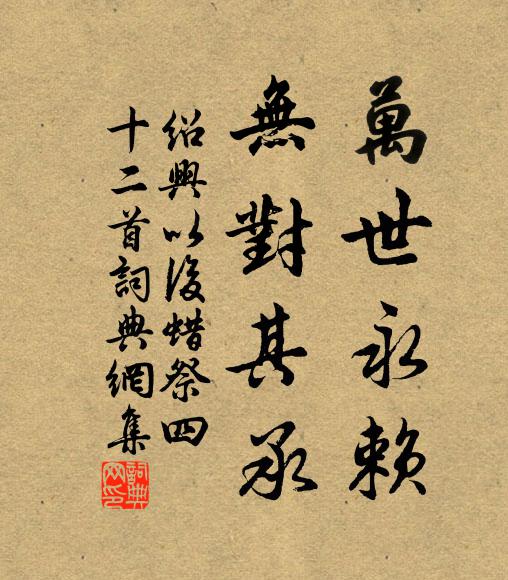 萬世永賴
無對其承
紹興以後蜡祭四
十二首詞典網集
詞典网印